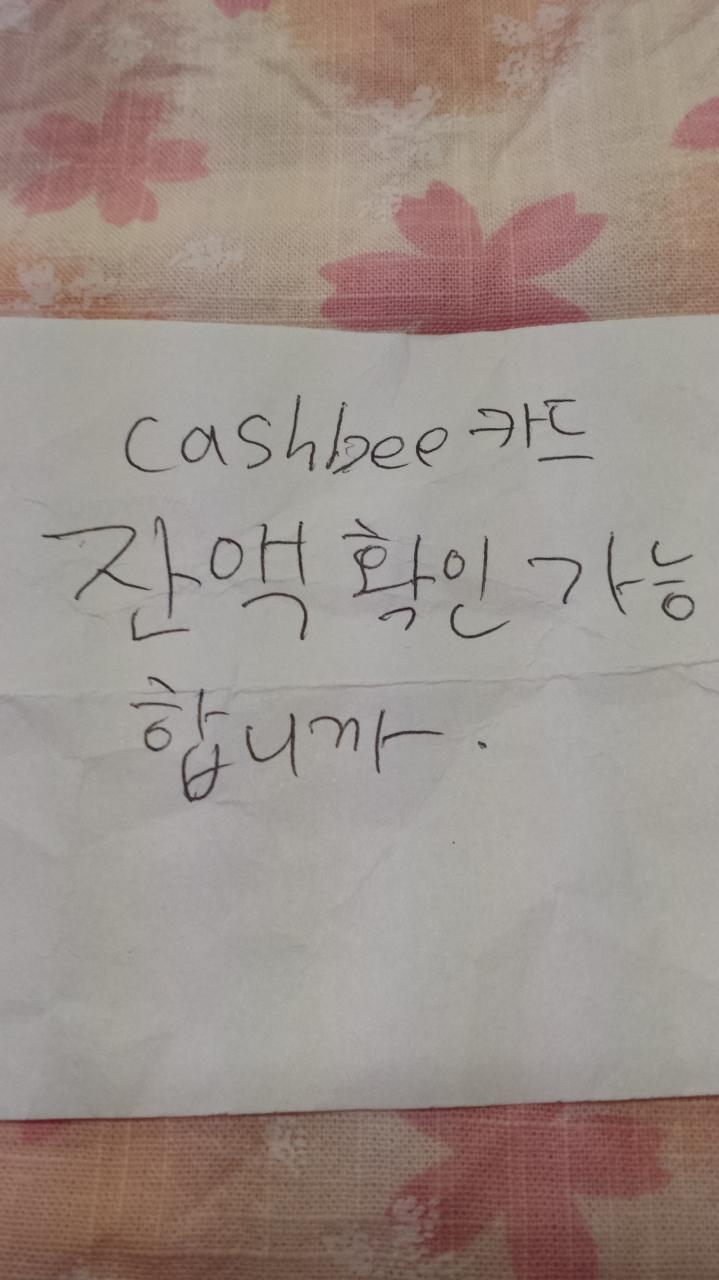 cashbee 카드
잔액 확인 가능
합니까.